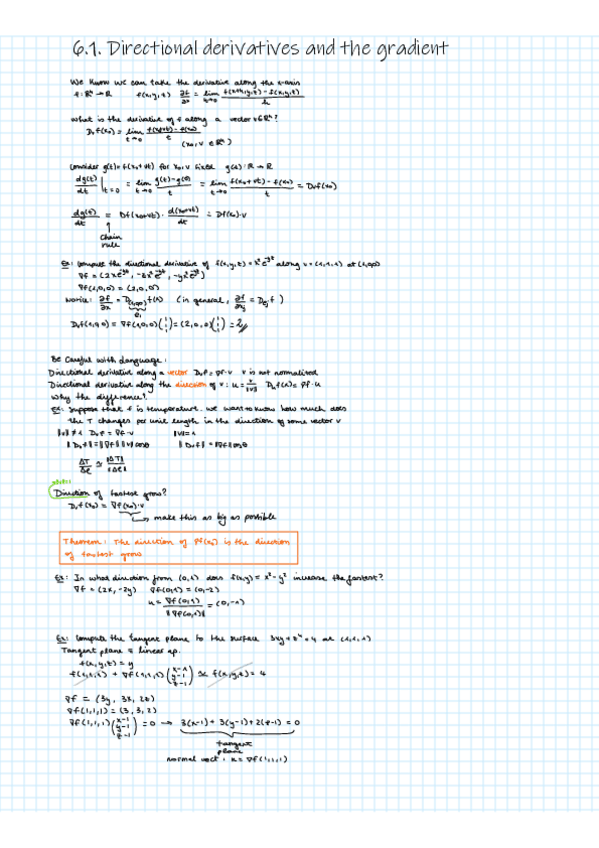 6.1. Directional derivatives and the gradient
We know we can take the derivative along the x-axis
f: ℝⁿ → ℝ f(x,y,z) ∂f/∂x = lim t→0 f(x+h,y,z) - f(x,y,z) / h
what is the derivative of f along a vector v∈ℝⁿ?
Dvf(x₀) = lim t→0 f(x₀+vt) - f(x₀) / t
(x₀, v ∈ ℝⁿ)
Consider g(t) = f(x₀+vt) for x₀,v fixed g(t): ℝ → ℝ
dg(t)/dt | t=0 = lim t→0 g(t)-g(0) / t = lim t→0 f(x₀+vt) - f(x₀) / t = Dvf(x₀)
dg(t)/dt = Df(x₀+vt) · d(x₀+vt)/dt = Df(x₀)·v
chain
rule
Ex: Compute the directional derivative of f(x,y,z) = x²e^-yz along v = (1,1,1) at (1,0,0)
∇f = (2xe^-yz, -zx²e^-yz, -yx²e^-yz)
∇f(1,0,0) = (2,0,0)
Notice: ∂f/∂x = D(1,0,0) f(x) (in general, ∂f/∂xj = Dej f)
e₁
Dvf(1,0,0) = ∇f(1,0,0) (1 1 1) = (2,0,0) (1 1 1) = 2
Be careful with language:
Directional derivative along a vector Dvf = ∇f·v v is not normalized
Directional derivative along the direction of v: u = v/‖v‖ Duf(x) = ∇f·u
Why the difference?
Ex: Suppose that f is temperature. We want to know how much does
the T changes per unit length in the direction of some vector v
‖v‖ ≠ 1 Dvf = ∇f·v ‖v‖ = 1
‖Dvf‖ = ‖∇f‖ ‖v‖ cosθ ‖Dvf‖ = ‖∇f‖ cosθ
ΔT/Δℓ ≃ |ΔT|/|Δℓ|
Direction of fastest grow?
Dvf(x₀) = ∇f(x₀)·v
make this as big as possible
Theorem: The direction of ∇f(x₀) is the direction
of fastest grow
Ex: In what direction from (0,1) does f(x,y) = x²-y² increase the fastest?
∇f = (2x,-2y) ∇f(0,1) = (0,-2)
u = ∇f(0,1) / ‖∇f(0,1)‖ = (0,-1)
Ex: Compute the tangent plane to the surface 3xy+z²=4 at (1,1,1)
Tangent plane = linear ap.
f(x,y,z) = 4
f(1,1,1) + ∇f(1,1,1) (x-1 y-1 z-1) ≃ f(x,y,z) = 4
∇f = (3y, 3x, 2z)
∇f(1,1,1) = (3,3,2)
∇f(1,1,1) (x-1 y-1 z-1) = 0 → 3(x-1) + 3(y-1) + 2(z-1) = 0
tangent
plane
normal vect: n = ∇f(1,1,1)